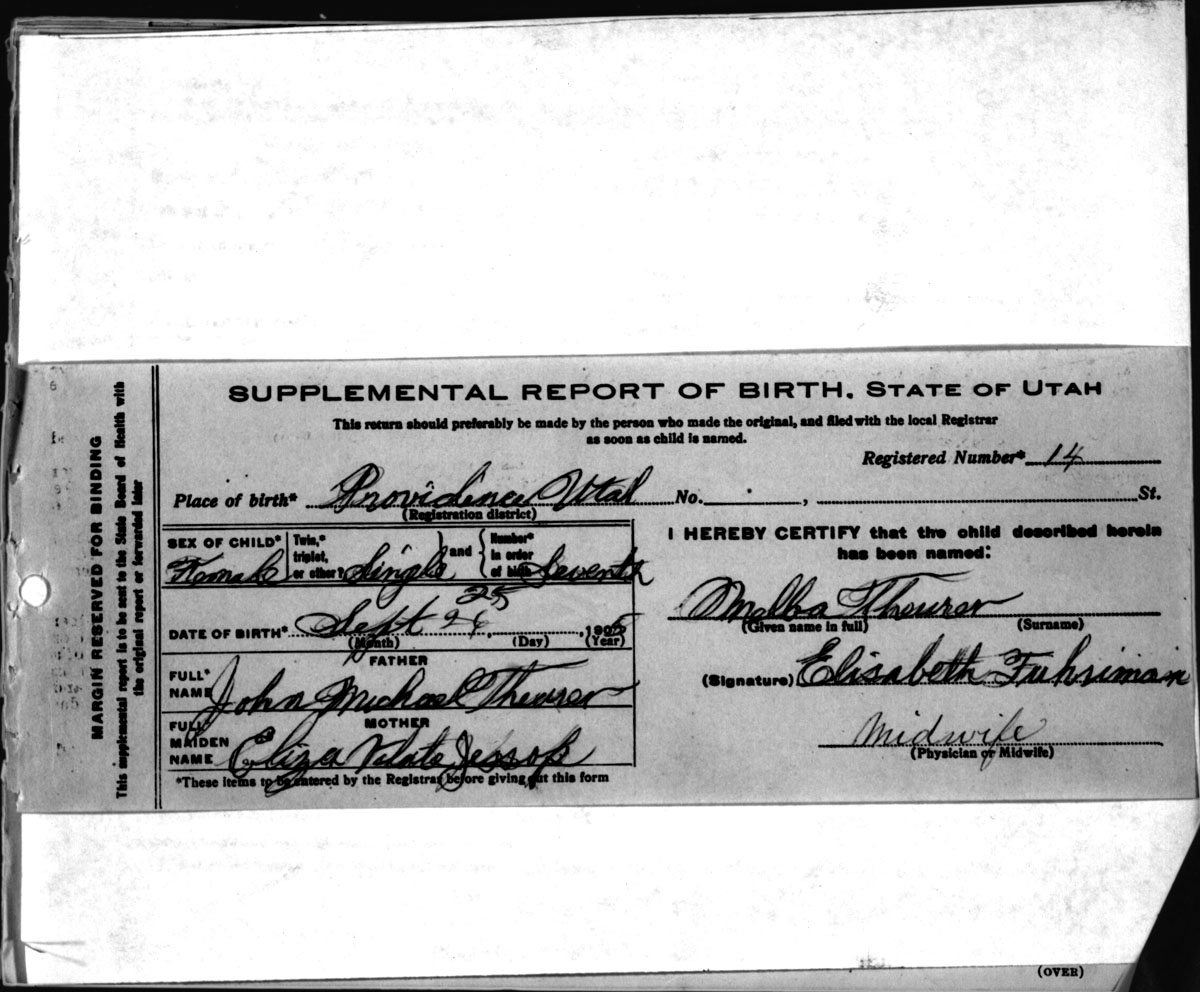 SUPPLEMENTAL REPORT OF BIRTH. STATE OF UTAH
This return should preferably be made by the person who made the original, and filed with the local Registrar
as soon as child is named.
Registered Number* 14
Place of birth* Providence Utah No. , St.
(Registration district)
SEX OF CHILD* Female Twin,* triplet, or other? Single and Number* in order of birth Seventh
25
DATE OF BIRTH* Sept 26, , 1905
(Month) (Day) (Year)
FATHER
FULL* NAME John Michael Theurer
MOTHER
FULL* MAIDEN NAME Eliza Jessop
*These items to be entered by the Registrar before giving out this form
I HEREBY CERTIFY that the child described herein
has been named:
Melba Theurer
(Given name in full) (Surname)
(Signature) Elisabeth Fuhriman
Midwife
(Physician or Midwife)
MARGIN RESERVED FOR BINDING
This supplemental report is to be sent to the State Board of Health with
the original report or forwarded later
(OVER)